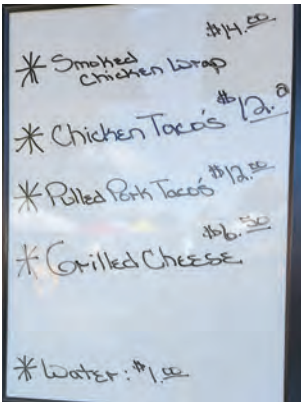 $14.00
* Smoked
Chicken Wrap
* Chicken Taco's $12.00
* Pulled Pork Taco's $12.00
$6.50
* Grilled Cheese
* Water: $1.00